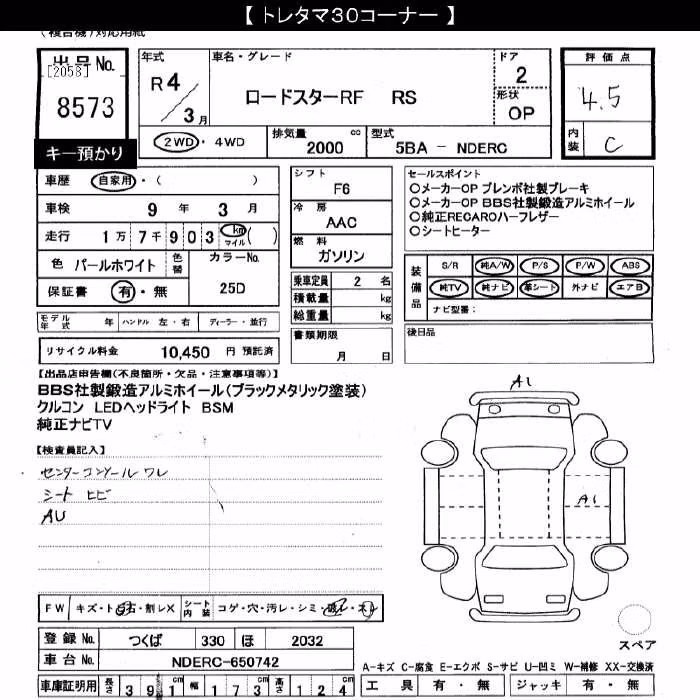 【トレタマ30コーナー】
(複合機)対応用紙
出品No.
[2058]
8573
キー預かり
年式
R4/3月
車名・グレード
ロードスターRF RS
ドア
2
形状
OP
2WD・4WD
排気量
2000 cc
型式
5BA - NDERC
評価点
4.5
内装
C
車歴 自家用・( )
車検 9年 3月
走行 1万7千903 km マイル( )
色 パールホワイト 色替 カラーNo.
保証書 有・無 25D
シフト
F6
冷房
AAC
燃料
ガソリン
乗車定員 2名
積載量 kg
総重量 kg
セールスポイント
○メーカーOP ブレンボ社製ブレーキ
○メーカーOP BBS社製鍛造アルミホイール
○純正RECAROハーフレザー
○シートヒーター
装備品
S/R 純A/W P/S P/W ABS
純TV 純ナビ 革シート 外ナビ エアB
ナビ型番:
モデル年式 年 ハンドル 左・右 ディーラー・並行
書類期限
月 日
後日品
リサイクル料金 10,450 円 預託済
【出品店申告欄(不良箇所・欠品・注意事項等)】
BBS社製鍛造アルミホイール(ブラックメタリック塗装)
クルコン LEDヘッドライト BSM
純正ナビTV
【検査員記入】
センターコンソール ワレ
シート ヒビ
AU
A1
A1
FW キズ・ト石・割レX シート内装 コゲ・穴・汚レ・シミ・
登録No. つくば 330 ほ 2032
車台No. NDERC-650742
スペア
A-キズ C-腐食 E-エクボ S-サビ U-凹ミ W-補修 XX-交換済
車庫証明用 長さ 391cm 幅 173 高さ 124
工具 有・無 ジャッキ 有・無